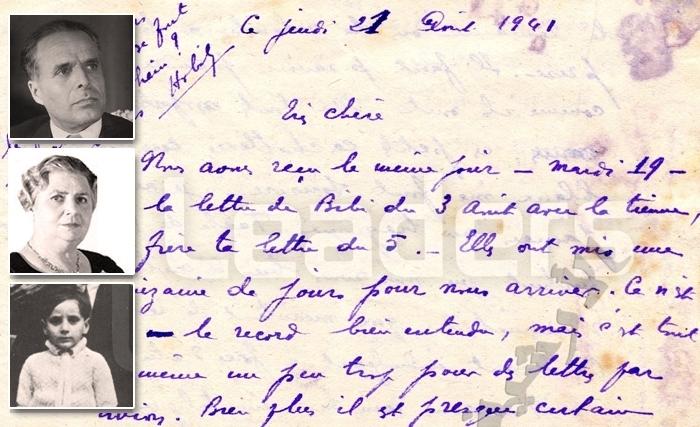 Ce jeudi 21 Août 1941
se fait
hein ?
Habib
Très chère
Nous avons reçu le même jour – mardi 19 –
la lettre de Bibi du 3 Août avec la tienne,
frère ta lettre du 5. – Elles ont mis une
zaine de jours pour nous arriver. Ce n'est
– le record bien entendu, mais c'est tout
même un peu trop pour des lettres par
avion. Bien plus il est presque certain
Leaders